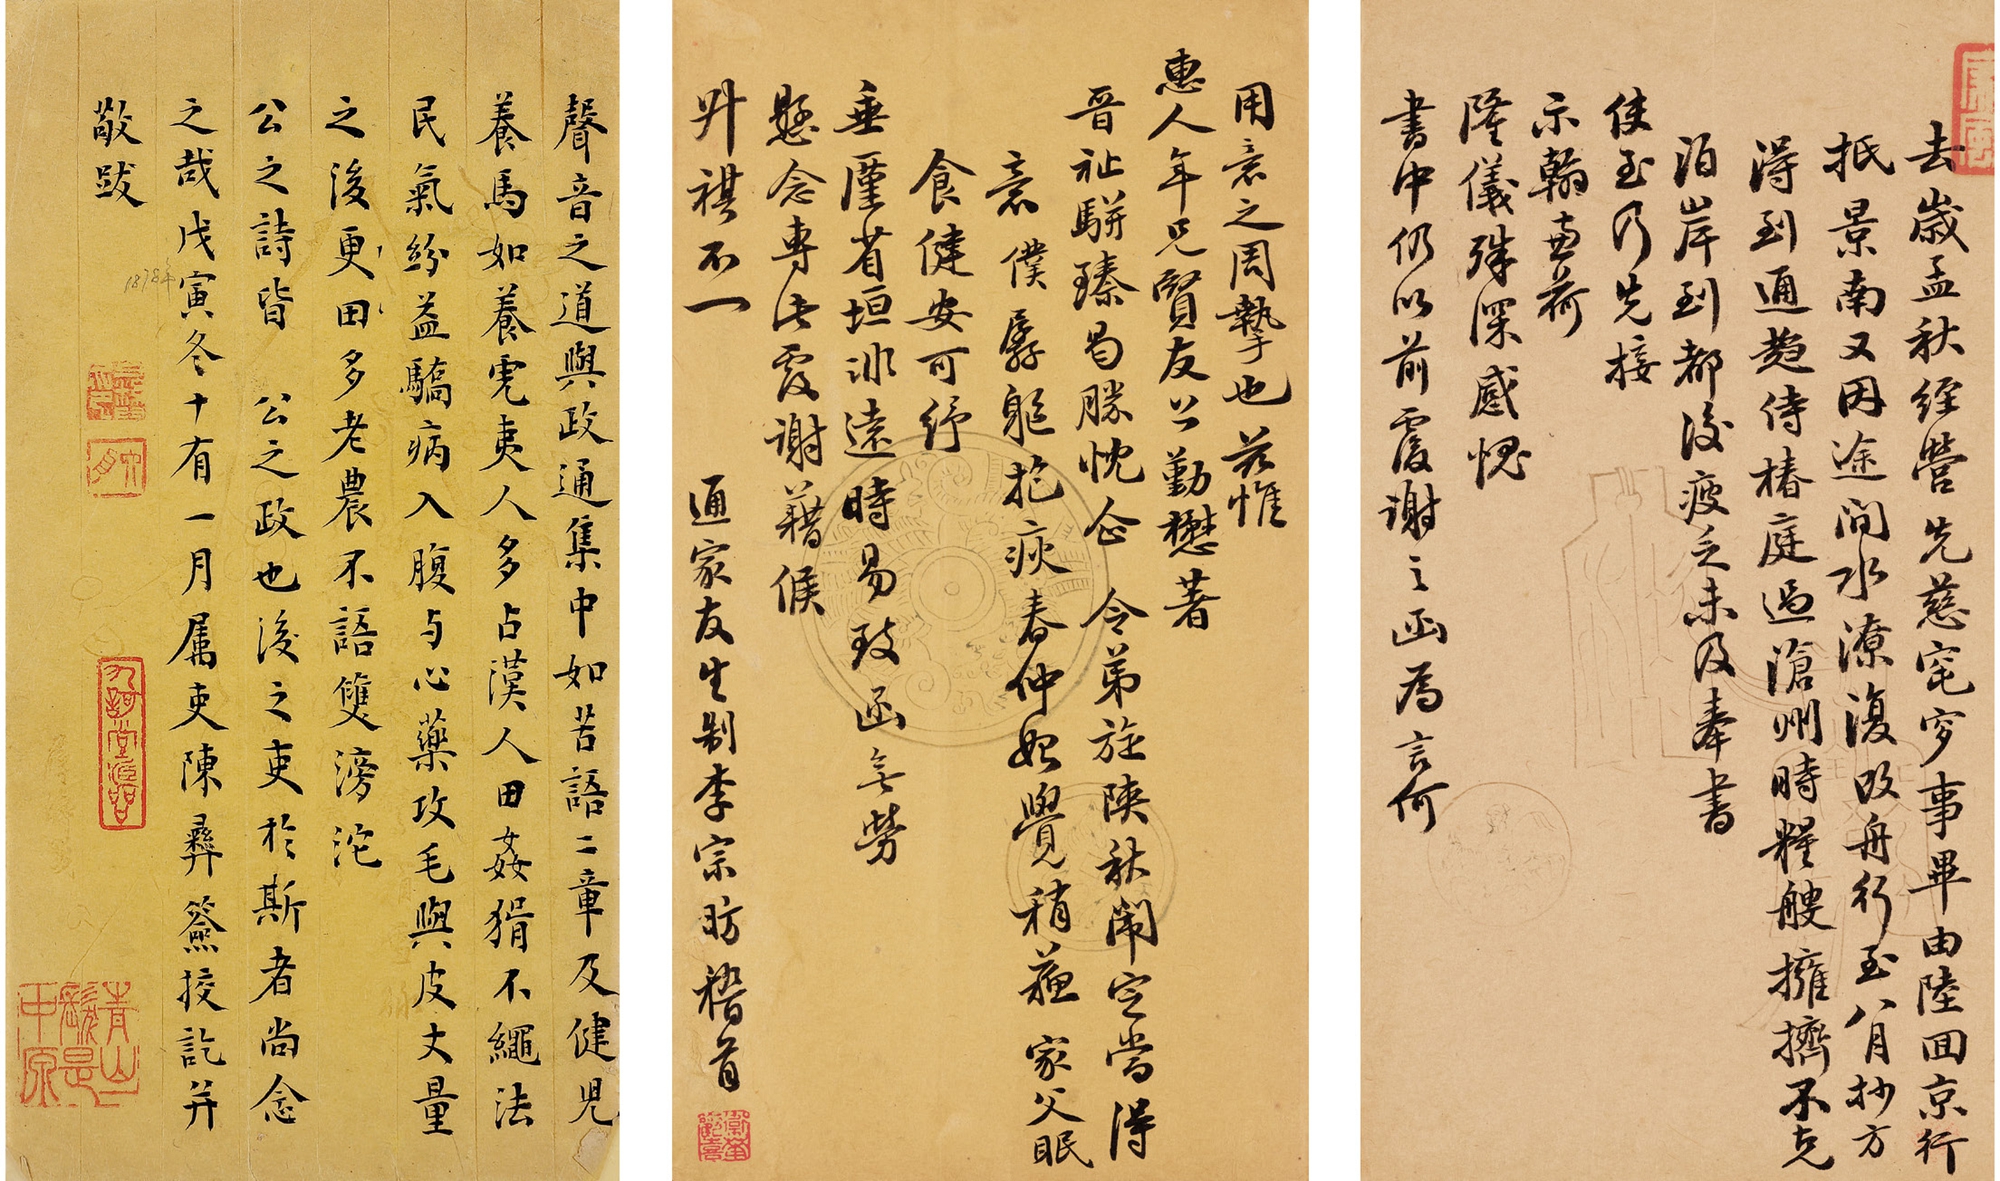 去歲孟秋經營先慈窀穸事畢由陸回京行
抵景南又因途間水潦復改舟行至八月抄方
得到通趨侍椿庭過滄州時糧艘擁擠不克
泊岸到都後疲乏未及奉書
使至乃先接
示翰並荷
隆儀殊深感愧
書中仍以前覆謝之函為言何
用意之周摯也茲惟
惠人年兄賢友公勤懋著
晉祉駢臻曷勝忱念 令弟旋陝秋闈定當得
意 僕孱軀抱疢春仲始覺稍蘇 家父眠
食健安可紓
垂廑省垣非遠時易致函無勞
懸念專此覆謝藉候
升祺不一
通家友生制李宗昉稽首
聲音之道與政通集中如苦語二章及健兒
養馬如養虎夷人多占漢人田姦猾不繩法
民氣紛益驕病入腹與心藥攻毛與皮丈量
之後更田多老農不語雙滂沱
公之詩皆 公之政也後之吏於斯者尚念
之哉戊寅冬十有一月屬吏陳彝簽挍訖并
敬跋
1878年
青山髮是中原